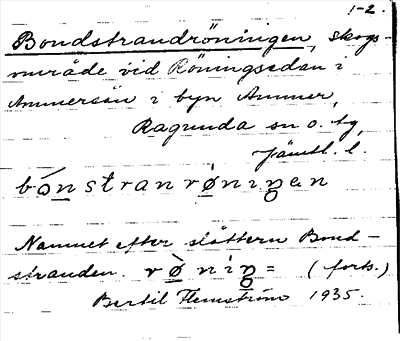 1-2.
Bondstrandröningen, skogs-
område vid Röningsedan i
Ammersön i byn Ammer,
Ragunda sn o. tg,
Jämtl. l.
bónstranrö́niŋen
Namnet efter slåttern Bond-
stranden. rø̀niŋ = (forts.)
Bertil Flemström 1935.